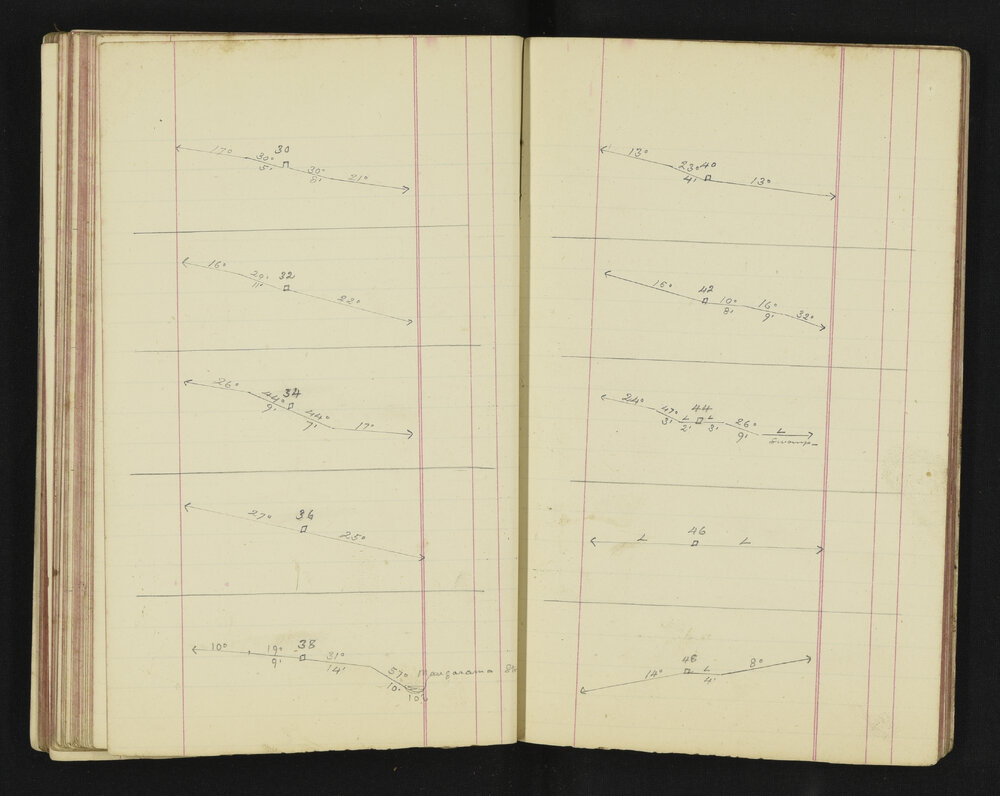 30
17° 30° 30° 21°
5' 8'
32
16° 20° 22°
11'
34
26° 44° 44° 17°
9' 7'
36
27° 25°
38
10° 19° 31° 57°
9' 14' 10' 10'
40
13° 23° 13°
4'
42
15° 10° 16° 32°
8' 9'
44
24° 47° L L 26° L
3' 2' 3' 9' Swamp
46
L L
48
14° L 8°
4'